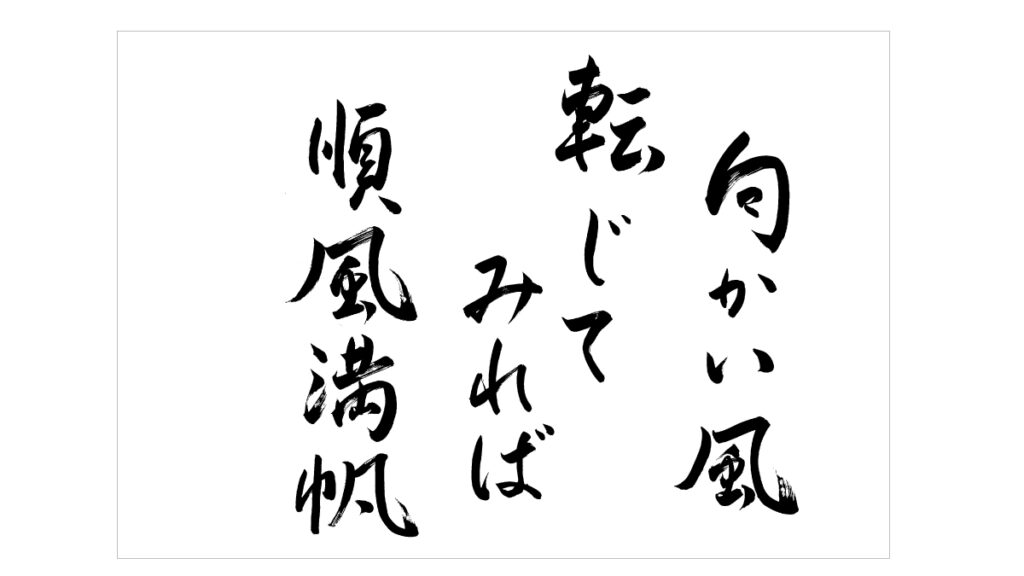 向かい風
転じて
みれば
順風満帆